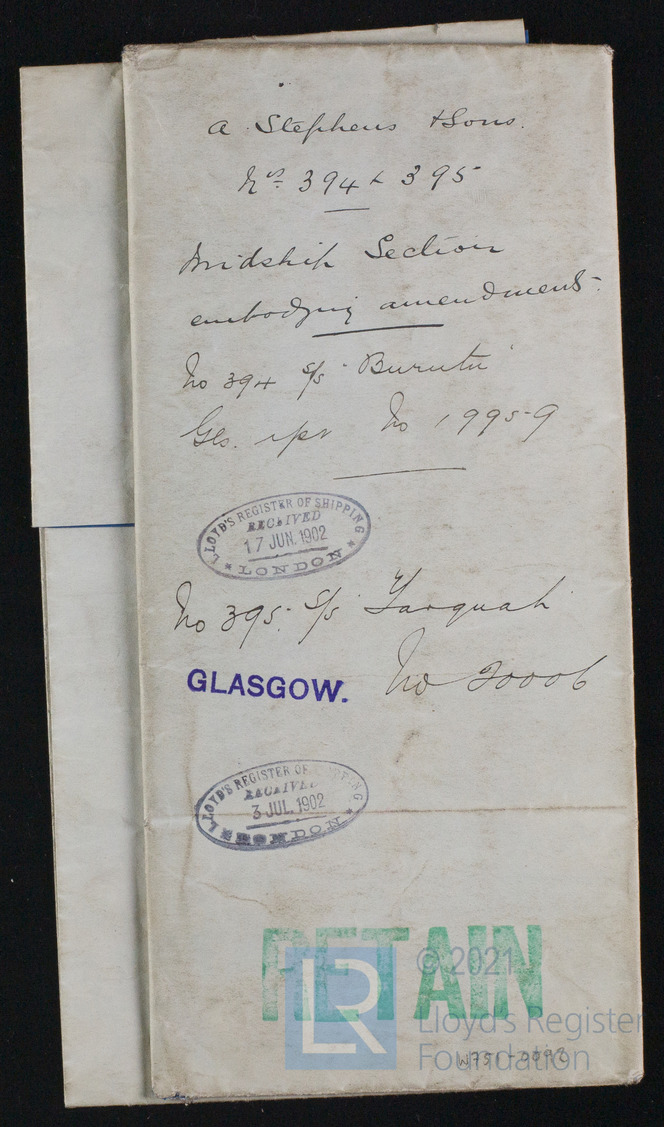 A. Stephens & Sons.
Nos. 394 & 395
Midship Section
embodying amendments.
No 394 S/S "Burutu"
Gls. rpt No 19959
LLOYD'S REGISTER OF SHIPPING
RECEIVED
17 JUN. 1902
LONDON
No 395. S/S Tarquah
GLASGOW. No 20006
LLOYD'S REGISTER OF SHIPPING
RECEIVED
3 JUL. 1902
LONDON
RETAIN
LR
© 2021
Lloyd's Register
Foundation
W751-0092